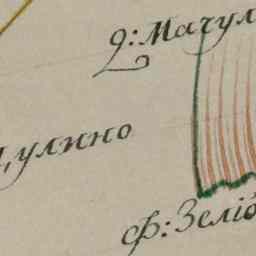 д: Мачул
улино
ф: Зелів